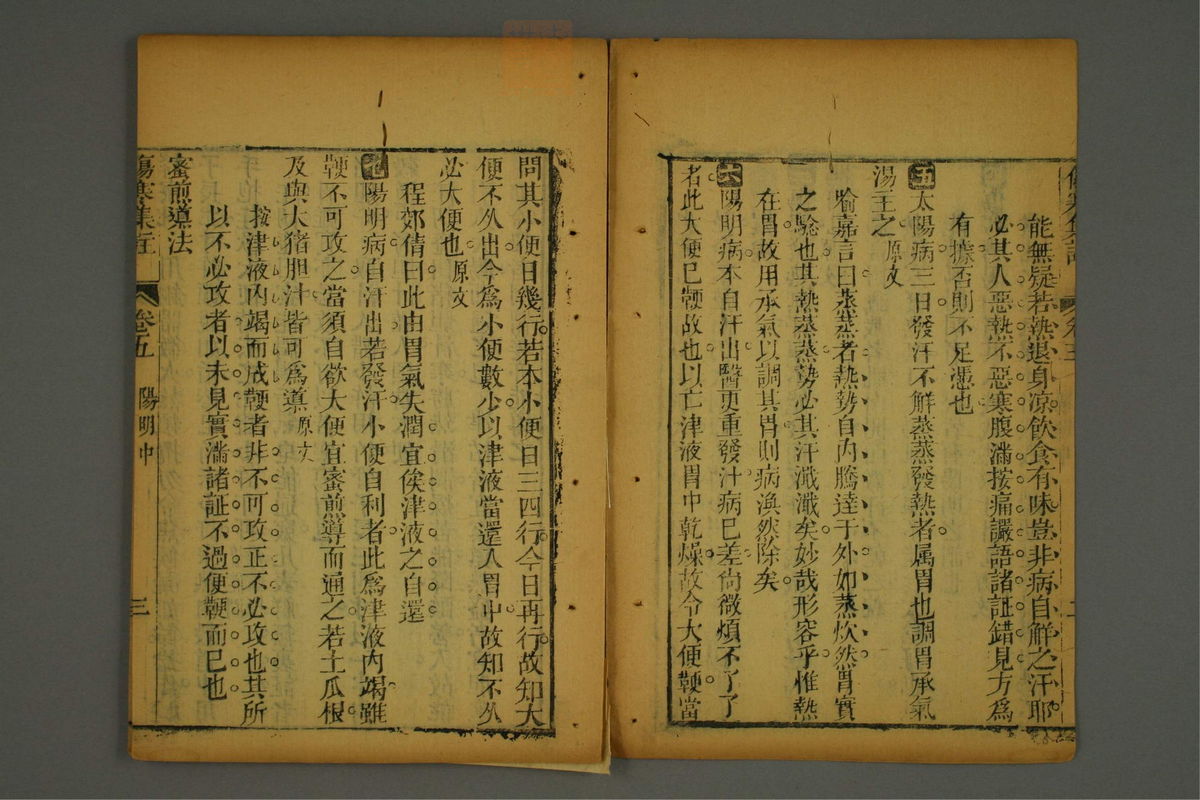 能無疑若熱退身凉飲食有味豈非病自觧之汗耶
必其人惡熱不惡寒腹滿按痛讝語諸証錯見方為
有據否則不足憑也
五太陽病三日發汗不解蒸蒸發熱者属胃也調胃承氣
湯主之原文
喻嘉言曰蒸蒸者熱勢自內騰達于外如蒸炊然胃實
之驗也其熱蒸蒸勢必其汗濈濈矣妙哉形容乎惟熱
在胃故用承氣以調其胃則病渙然除矣
六陽明病本自汗出醫更重發汁病已差尙微煩不了了
者此大便已鞕故也以亡津液胃中乾燥故令大便鞕當
問其小便日幾行若本小便日三四行今日再行故知大
便不乆出今為小便數少以津液當還入胃中故知不乆
必大便也原文
程郊倩曰此由胃氣失潤宜俟津液之自還
陽明病自汗出若發汗小便自利者此為津液內竭雖
鞕不可攻之當須自欲大便宜蜜煎導而通之若土瓜根
及與大猪胆汁皆可為導原文
按津液內竭而成鞕者非不可攻正不必攻也其所
以不必攻者以未見實滿諸証不過便鞕而已也
蜜煎導法
傷寒集註
卷五
陽明中
三